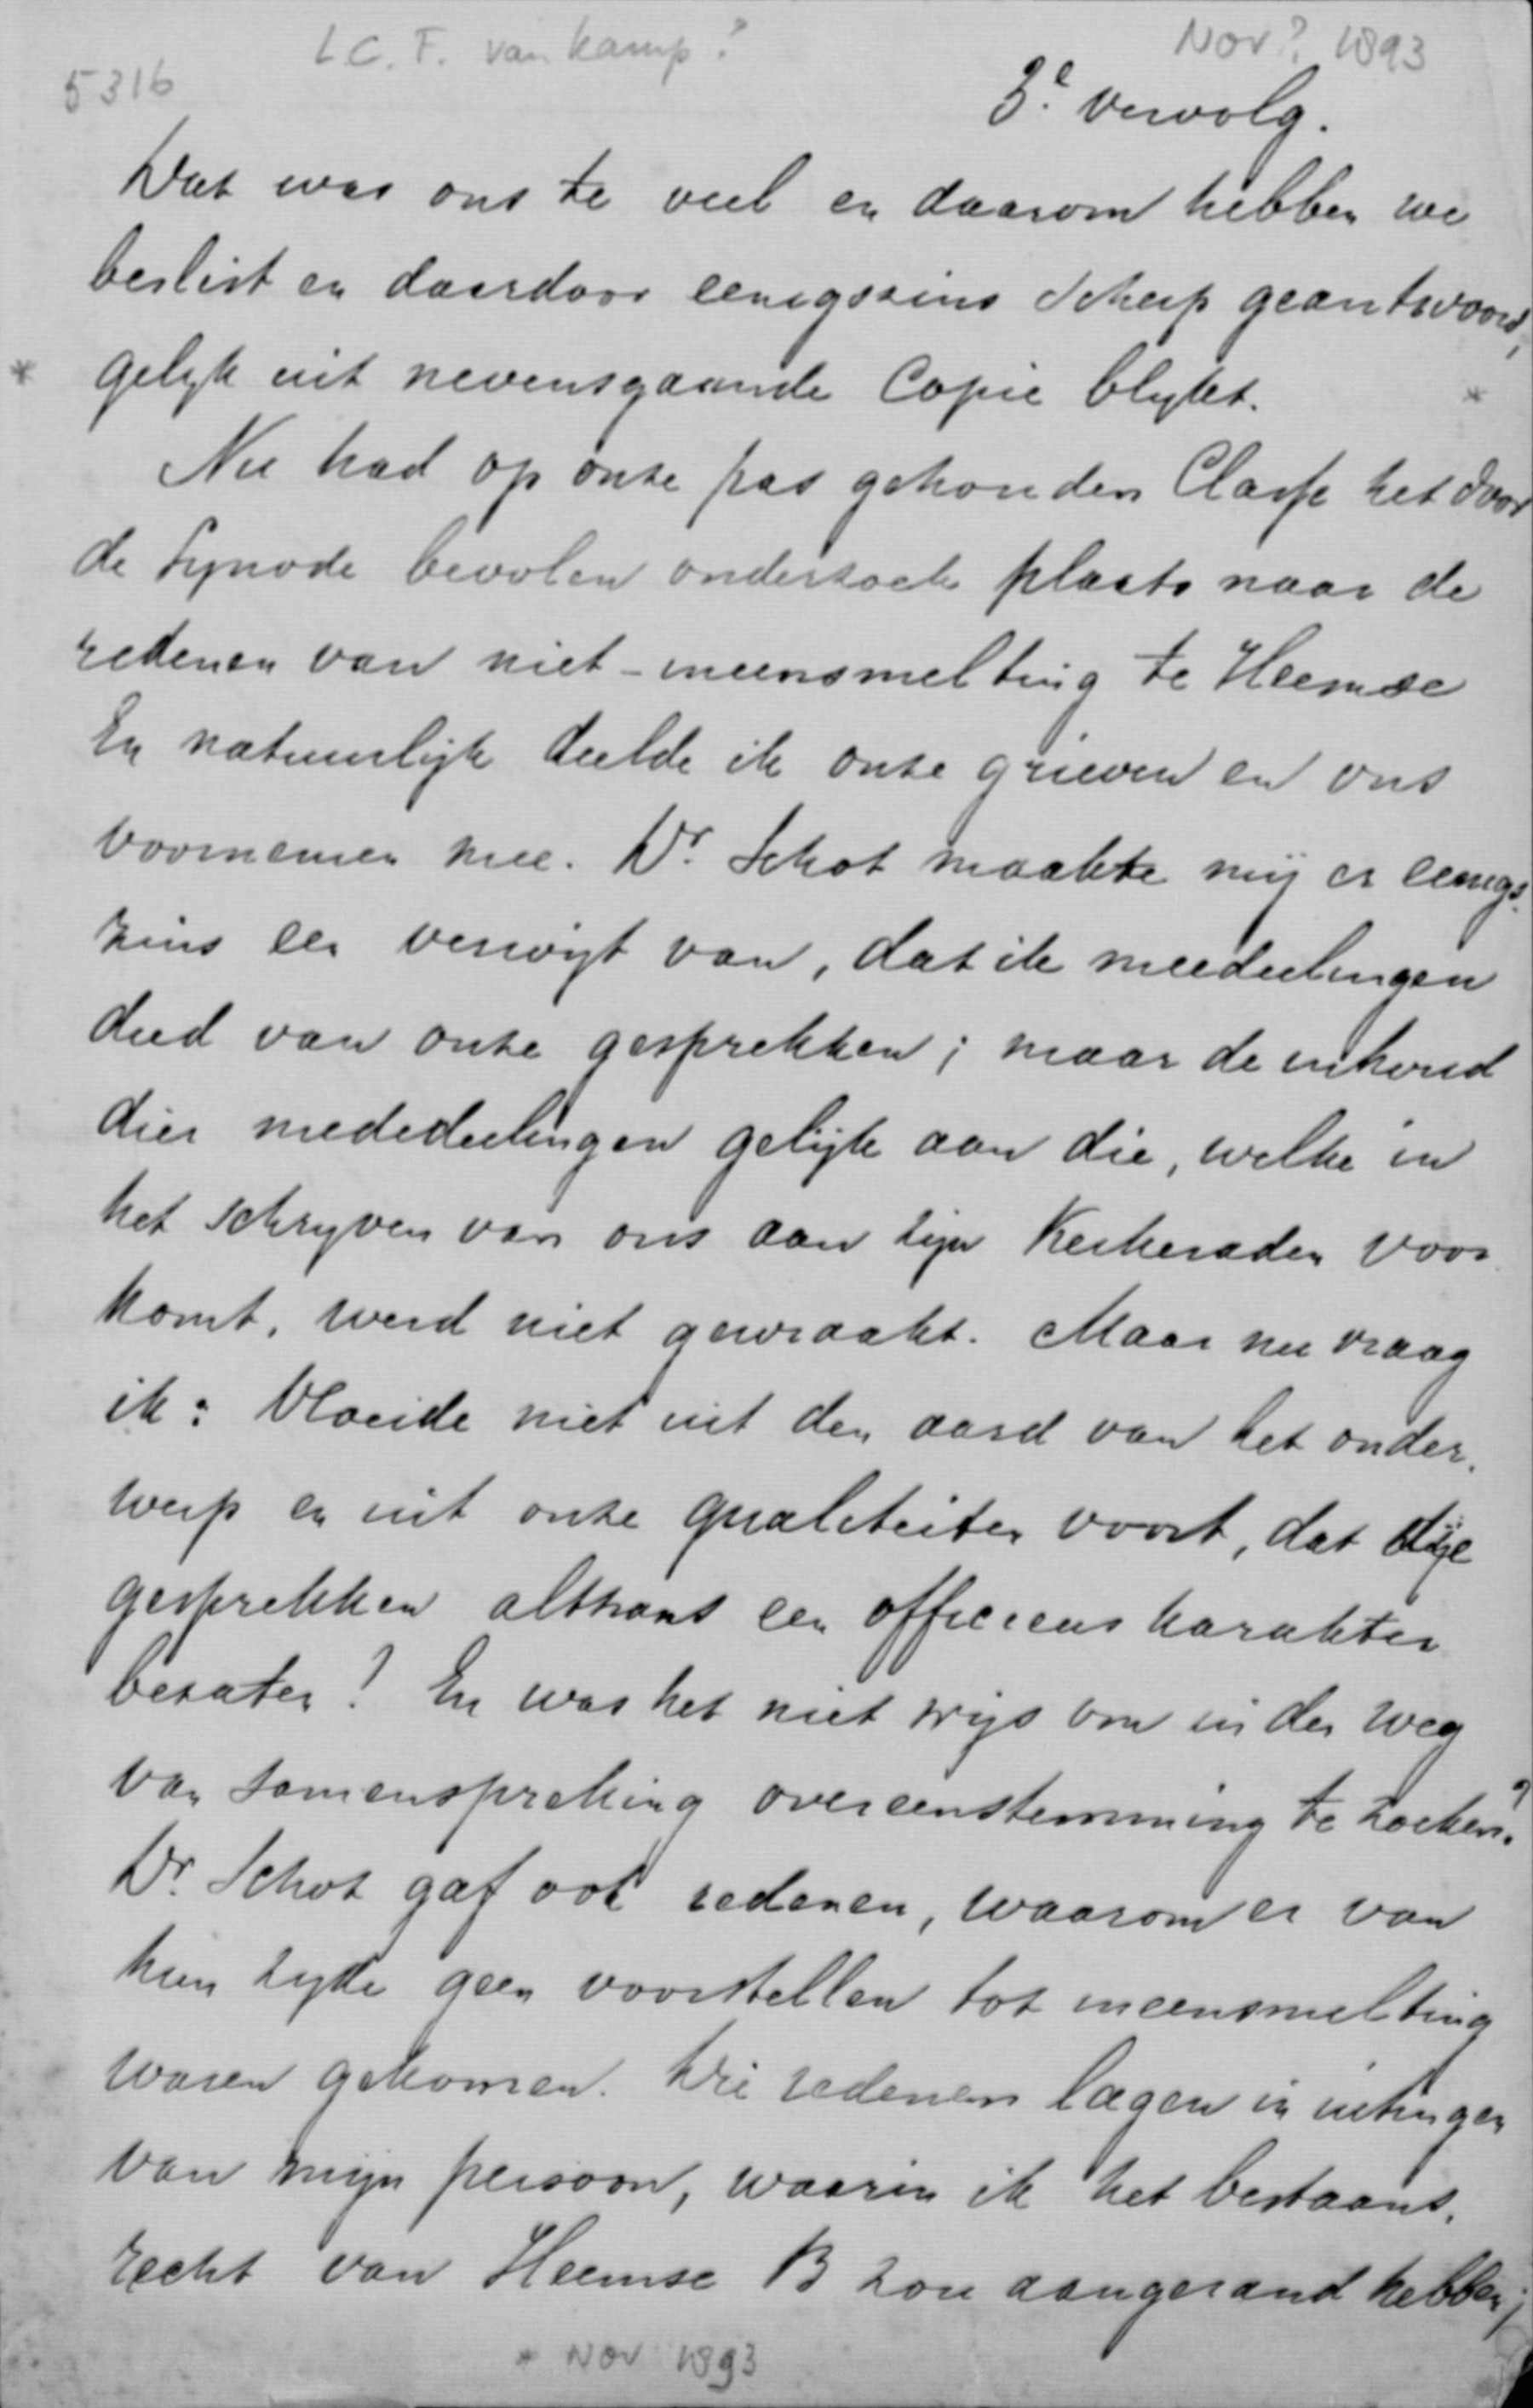 L.C.F. van Kamp?
Nov? 1893
5316
3e vervolg.
Dat was ons te veel en daarom hebben we
beslist en daardoor eenigszins scherp geantwoord,
* gelijk uit nevensgaande Copie blijkt. *
Nu had op onze pas gehouden Classe het door
de Synode bevolen onderzoek plaats naar de
redenen van niet-ineensmelting te Heemse
En natuurlijk deelde ik onze grieven en ons
voornemen mee. Ds. Schot maakte mij er eenigs-
zins een verwijt van, dat ik meedeelingen
deed van onze gesprekken; maar de inhoud
dier mededeelingen gelijk aan die, welke in
het schrijven van ons aan zijn Kerkeraden voor
komt, werd niet gewraakt. Maar nu vraag
ik: Vloeide niet uit den aard van het onder-
werp en uit onze qualiteiten voort, dat die
gesprekken althans een officieus karakter
bezaten? En was het niet wijs om in den weg
van samenspreking overeenstemming te zoeken?
Ds. Schot gaf ook redenen, waarom er van
hun zijde geen voorstellen tot ineensmelting
waren gekomen. Die redenen lagen in uitingen
van mijn persoon, waarin ik het bestaans-
recht van Heemse B zou aangerand hebben;
* Nov 1893